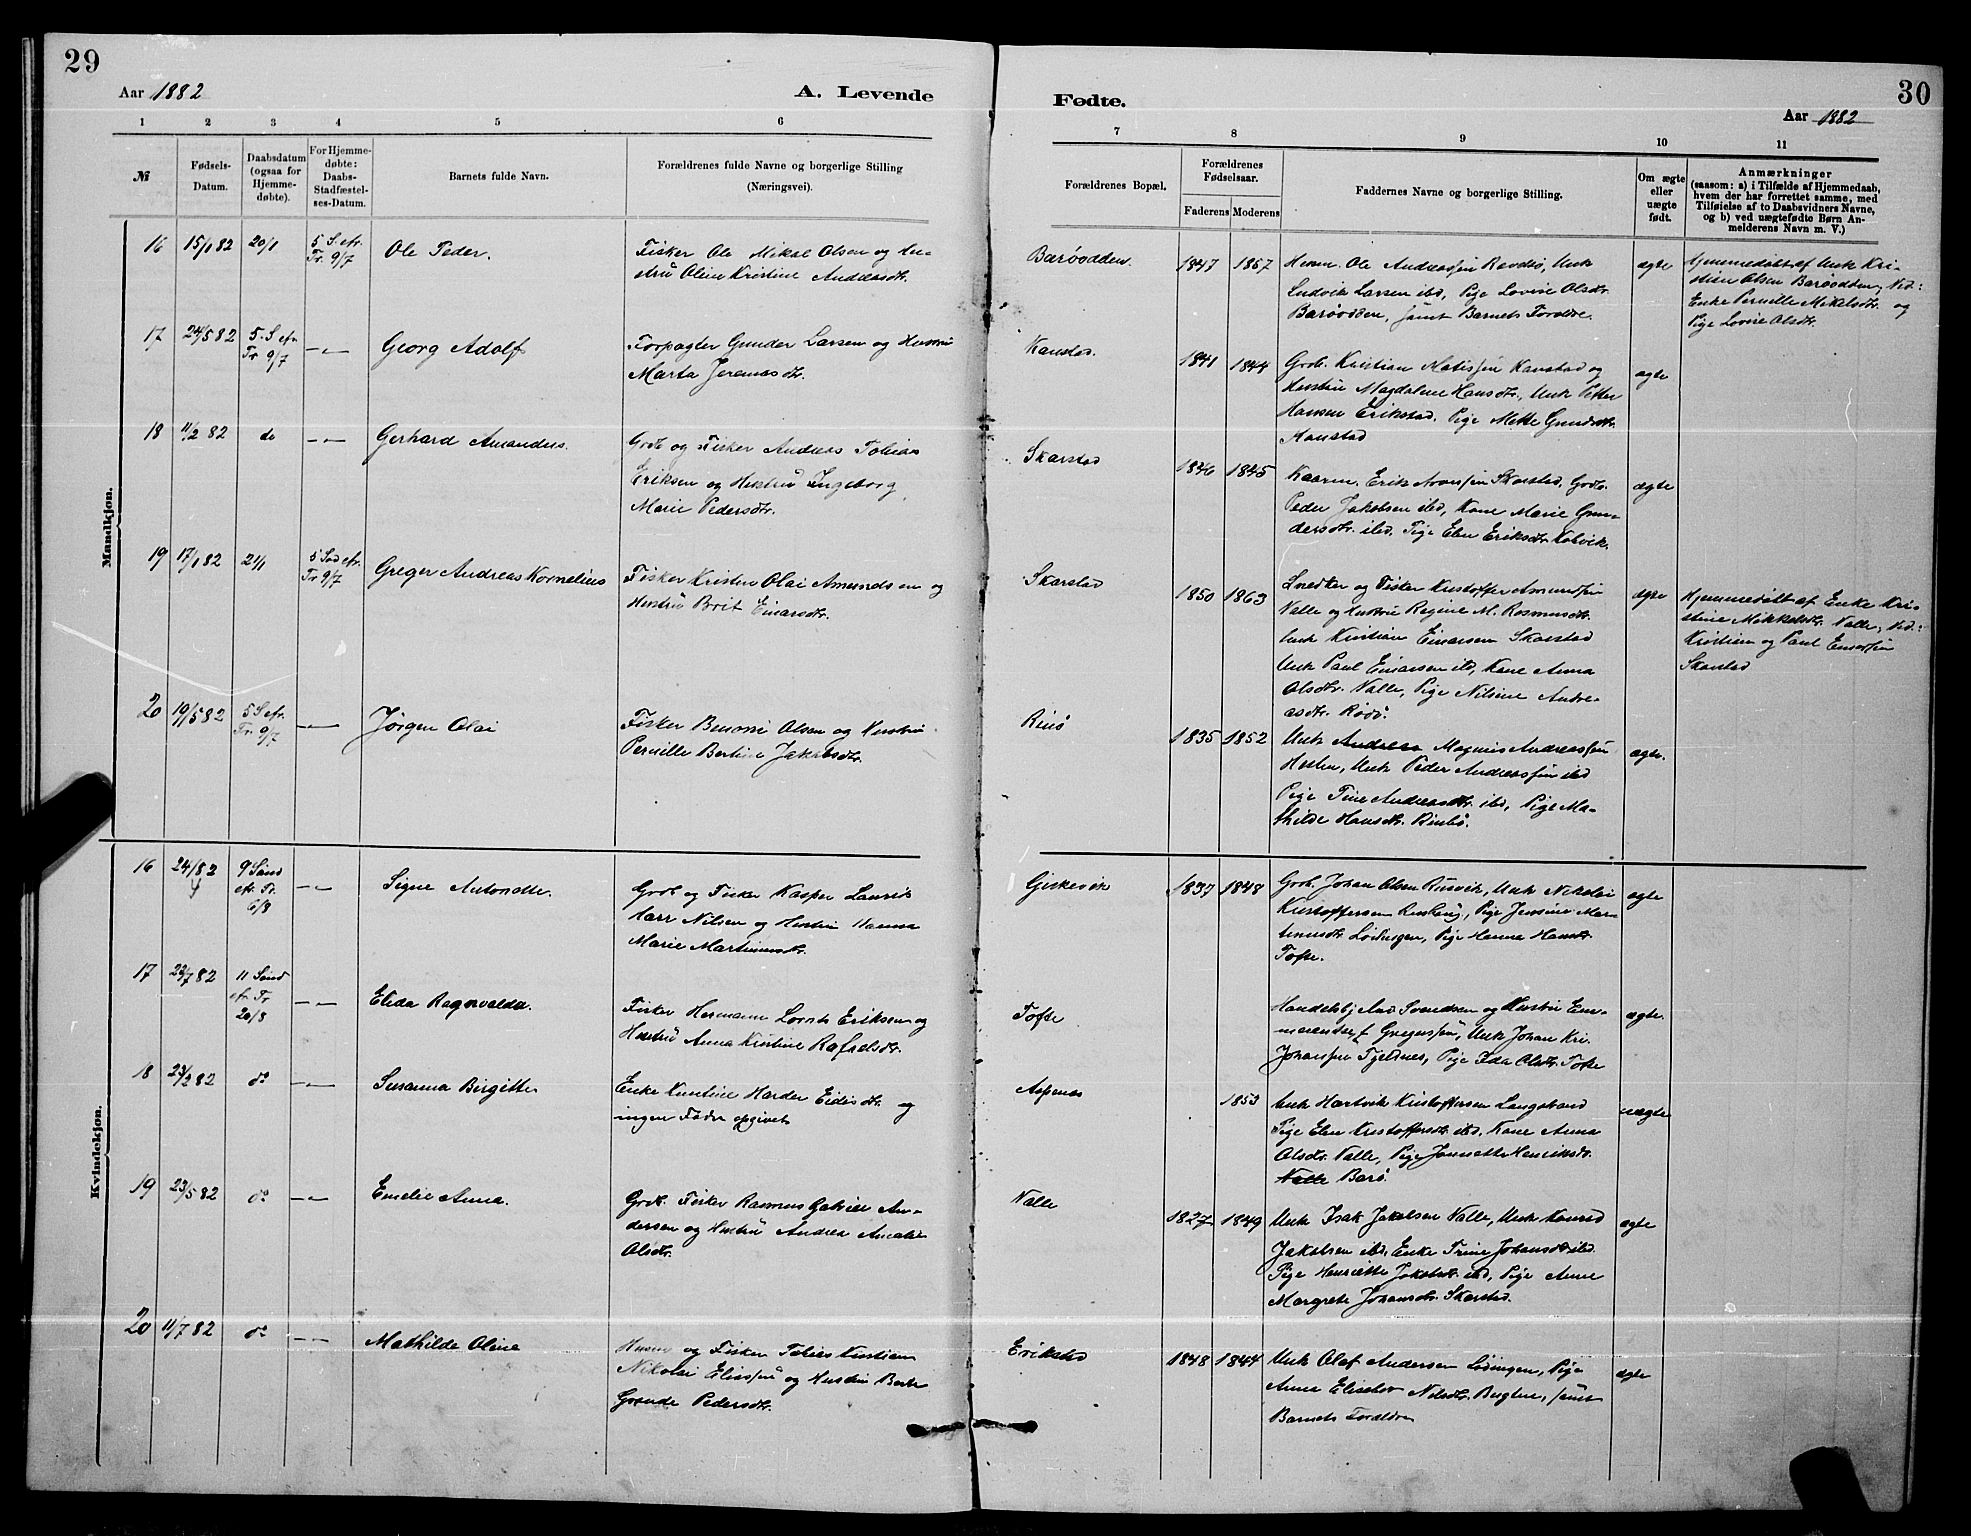 29
Aar 1882
A. Levende
1 2 3 4 5 6
№
Fødsels-Datum.
Daabsdatum (ogsaa for Hjemmedøbte).
For Hjemmedøbte: Daabs-Stadfæstelses-Datum.
Barnets fulde Navn.
Forældrenes fulde Navne og borgerlige Stilling (Næringsvei).
Mandkjøn.
16 15/1 82 20/1 5 S. efr. Tr. 9/7 Ole Peder.
Fisker Ole Mikal Olsen og Hu-
strü Oline Kristine Andreasdtr.
17 24/5 82 5. S efr. Tr. 9/7 -"- Georg Adolf
Forpagter Gunder Larsen og Hustrü
Marta Jeremiasdtr.
18 11/2 82 do -"- Gerhard Amandus.
Grdb og Fisker Andreas Tobias
Eriksen og Hustrü Ingeborg
Marie Pedersdtr.
19 17/1 82 21/1 5 Sød efr. Tr 9/7 Greger Andreas Kornelius
Fisker Kristen Olai Amundsen og
Hustrü Brit Einarsdtr.
20 19/5 82 5 S efr. Tr. 9/7 -"- Jørgen Olai
Fisker Benoni Olsen og Hustrü
Pernille Bertine Jakobsdtr.
Kvindekjøn.
16 24/82 9 Sønd efr. Tr. 6/8 -"- Signe Antonette.
Grdb og Fisker Kasper Lauris
Harr Nilsen og Hustrü Hanna
Marie Martinusdtr.
17 22/7 82 11 Sønd efr. Tr 20/8 -"- Elida Ragnvalda.
Fisker Hermann Lornts Eriksen og
Hustrü Anna Kristine Rafaelsdtr.
18 23/2 82 do -"- Susanna Birgitte
Enke Kirstine Harder Eidisdtr. og
ingen Fader opgivet
19 23/5 82 do -"- Emelie Anna.
Grdb. Fisker Rasmus Gabriel An-
dersen og Hustrü Andrea Amalie
Olsdtr.
20 11/7 82 do -"- Mathilde Oline
Husm og Fisker Tobias Kristian
Nikolai Eliassen og Hustrü Berte
Gurude Pedersdtr.
Fødte.
30
Aar 1882
7 8 9 10 11
Forældrenes Bopæl.
Forældrenes Fødselsaar.
Faderens Moderens
Faddernes Navne og borgerlige Stilling.
Om ægte eller uægte født.
Anmærkninger
(saasom: a) i Tilfælde af Hjemmedaab,
hvem der har forrettet samme, med
Tilføielse af to Daabsvidners Navne,
og b) ved uægtefødte Børn An-
melderens Navn m. V.)
Barøodden. 1847 1857
Husm. Ole Andreassen Ravdsø, Unk
Ludvik Larsen ibd, Pige Lovise Olsdtr.
Barøodden, samt Barnets Forældre.
ægte
Hjemmedøbt af Unk Kri-
stian Olsen Barøodden, Vid:
Enke Pernille Mikelsdtr. og
Pige Lovise Olsdtr.
Kanstad. 1841 1844
Grdb. Kristian Matissen Kanstad og
Hustrü Magdalene Hansdtr., Unk Petter
Hansen Erikstad. Pige Mette Gundersdtr.
Kanstad
ægte
Skarstad 1846 1845
Kaarm. Erik Aronsen Skarstad. Grdb.
Peder Jakobsen ibd, Kone Marie Gun-
dersdtr. ibd. Pige Elen Eriksdtr. Kobvik.
ægte
Skarstad 1850 1863
Snedker og Fisker Kristoffer Amundsen
Valle og Hustrü Regine M. Rasmusdtr.
Unk Kristian Einarsen Skarstad
Unk Paul Einarsen ibd, Kone Anna
Olsdtr. Valle, Pige Nilsine Andre-
asdtr. Rødø.
ægte
Hjemmedøbt af Enke Kri-
stine Mikkelsdtr. Valle, Vid:
Kristian og Paul Einarsen
Skarstad
Rinø 1835 1852
Unk Andreas Magnus Andreassen
Hosten, Unk Peder Andreassen ibd
Pige Tine Andreasdtr. ibd, Pige Ma-
thilde Hansdtr. Rinbø.
ægte.
Gjiskevik 1837 1848
Grdb. Johan Olsen Rusvik, Unk Nikolai
Kristoffersen Rinbøg, Pige Jensine Mar-
tinusdtr Lødingen, Pige Hanna Hansdtr.
Tofte.
ægte
Tofte
Handelsbtj And Svendsen og Hustrü Em-
merentse f. Gregersen, Unk Johan Kri.
Johansen Fjeldnes, Pige Ida Olsdtr. Tofte
ægte.
Aspenes 1853
Unk Hartvik Kristoffersen Langstrand
Pige Elen Kristoffersdtr. ibd. Kone Anna
Olsdtr. Valle, Pige Jannette Henriksdtr.
Valle Barø
uægte
Valle 1827 1849
Unk Isak Jakobsen Valle, Unk Konrad
Jakobsen ibd, Enke Trine Johansdtr ibd.
Pige Henriette Jakobsdtr. ibd, Pige Anne
Margrete Johansdtr. Skarstad.
ægte
Erikstad 1848 1844
Unk Olaf Andersen Lødingen, Pige
Anna Elisebet Nilsdtr. Bugten, samt
Barnets Forældre
ægte